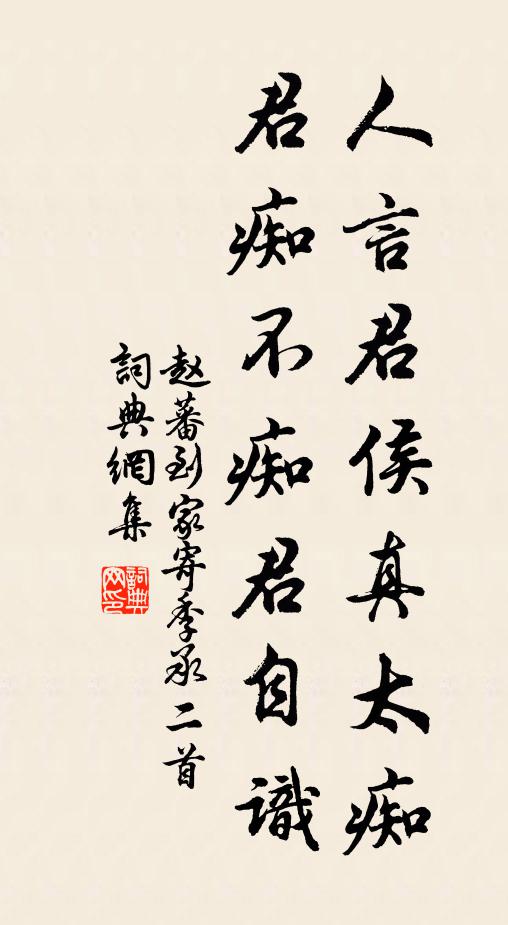 人言君侯真太痴
君痴不痴君自識
赵蕃到家寄季承二首
詞典網集
詞典网印